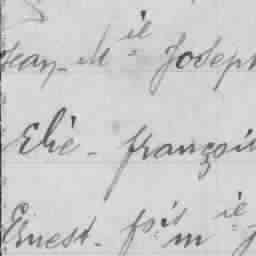 Jean-Mie Joseph
Elie - françois
Ernest - fois m ie J